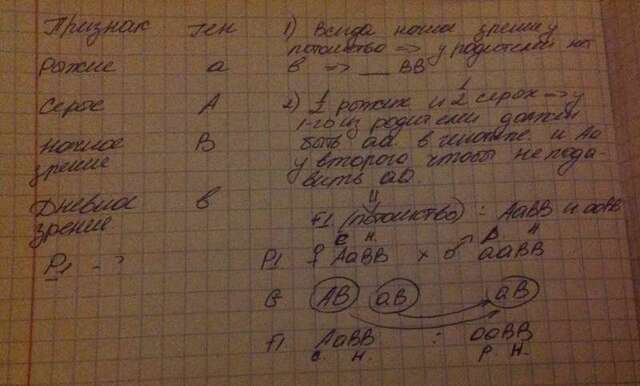 Признак ген
рыжие а
серые А
ночное зрение В
Дневное зрение в
P1 - ?
1) Всегда ночн зрение у
потомство => у родителей нет
в => __ ВВ
2) 1/2 рыжих и 1/2 серых => у
1-го из родителей должен
быть аа в генотипе и Аа
у второго чтобы не пода-
вить аа.
F1 (потомство) : АаВВ и ааВВ
с н. р н
P1 ♀ АаВВ х ♂ ааВВ
G АВ аВ аВ
F1 АаВВ : ааВВ
с. н. р н.